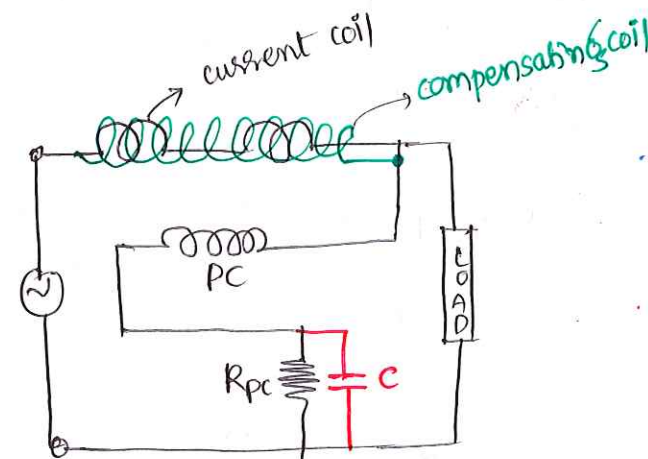 current coil
compensating coil
PC
LOAD
Rpc
C